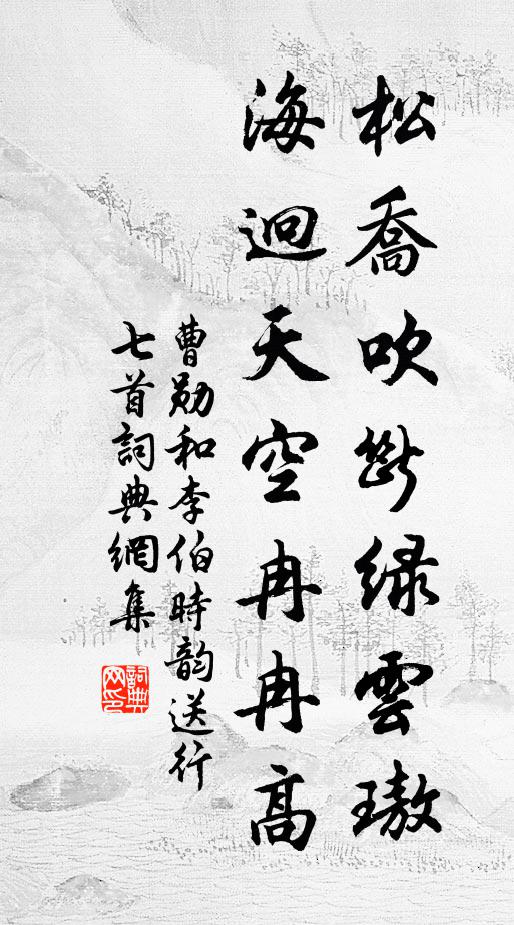 松喬吹斷绿雲璈
海迥天空冉冉高
曹勛和李伯時韵送行
七首詞典網集
詞典網印